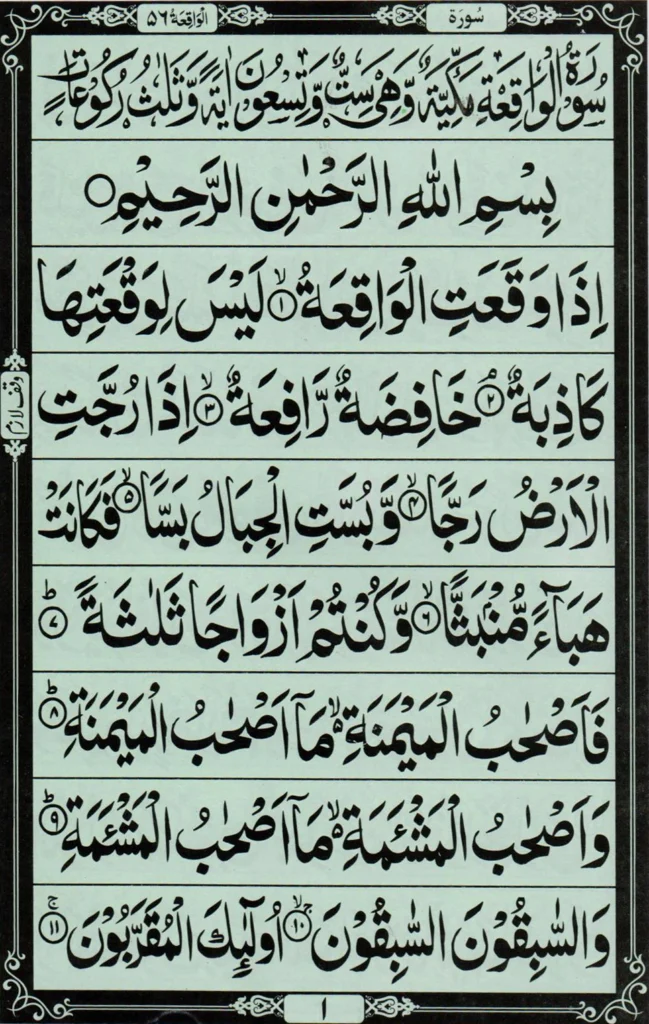 سُورَة
الْوَاقِعَة ٥٦
سُوْرَةُ الْوَاقِعَةِ مَكِّيَّةٌ وَّهِيَ سِتٌّ وَّتِسْعُوْنَ اٰيَةً وَّثَلٰثُ رُكُوْعَاتٍ
بِسْمِ اللهِ الرَّحْمٰنِ الرَّحِيْمِ ○
اِذَا وَقَعَتِ الْوَاقِعَةُ ۙ﴿۱﴾ لَيْسَ لِوَقْعَتِهَا
كَاذِبَةٌ ۘ﴿۲﴾ خَافِضَةٌ رَّافِعَةٌ ۙ﴿۳﴾ اِذَا رُجَّتِ
وقف لازم
الْاَرْضُ رَجًّا ۙ﴿۴﴾ وَّ بُسَّتِ الْجِبَالُ بَسًّا ۙ﴿۵﴾ فَكَانَتْ
هَبَآءً مُّنْۢبَثًّا ۙ﴿۶﴾ وَّكُنْتُمْ اَزْوَاجًا ثَلٰثَةً ؕ﴿۷﴾
فَاَصْحٰبُ الْمَيْمَنَةِ ۙ۬ مَاۤ اَصْحٰبُ الْمَيْمَنَةِ ؕ﴿۸﴾
وَاَصْحٰبُ الْمَشْـَٔمَةِ ۙ۬ مَاۤ اَصْحٰبُ الْمَشْـَٔمَةِ ؕ﴿۹﴾
وَالسّٰبِقُوْنَ السّٰبِقُوْنَ ۚۙ﴿۱۰﴾ اُولٰٓئِكَ الْمُقَرَّبُوْنَ ۚ﴿۱۱﴾
۱